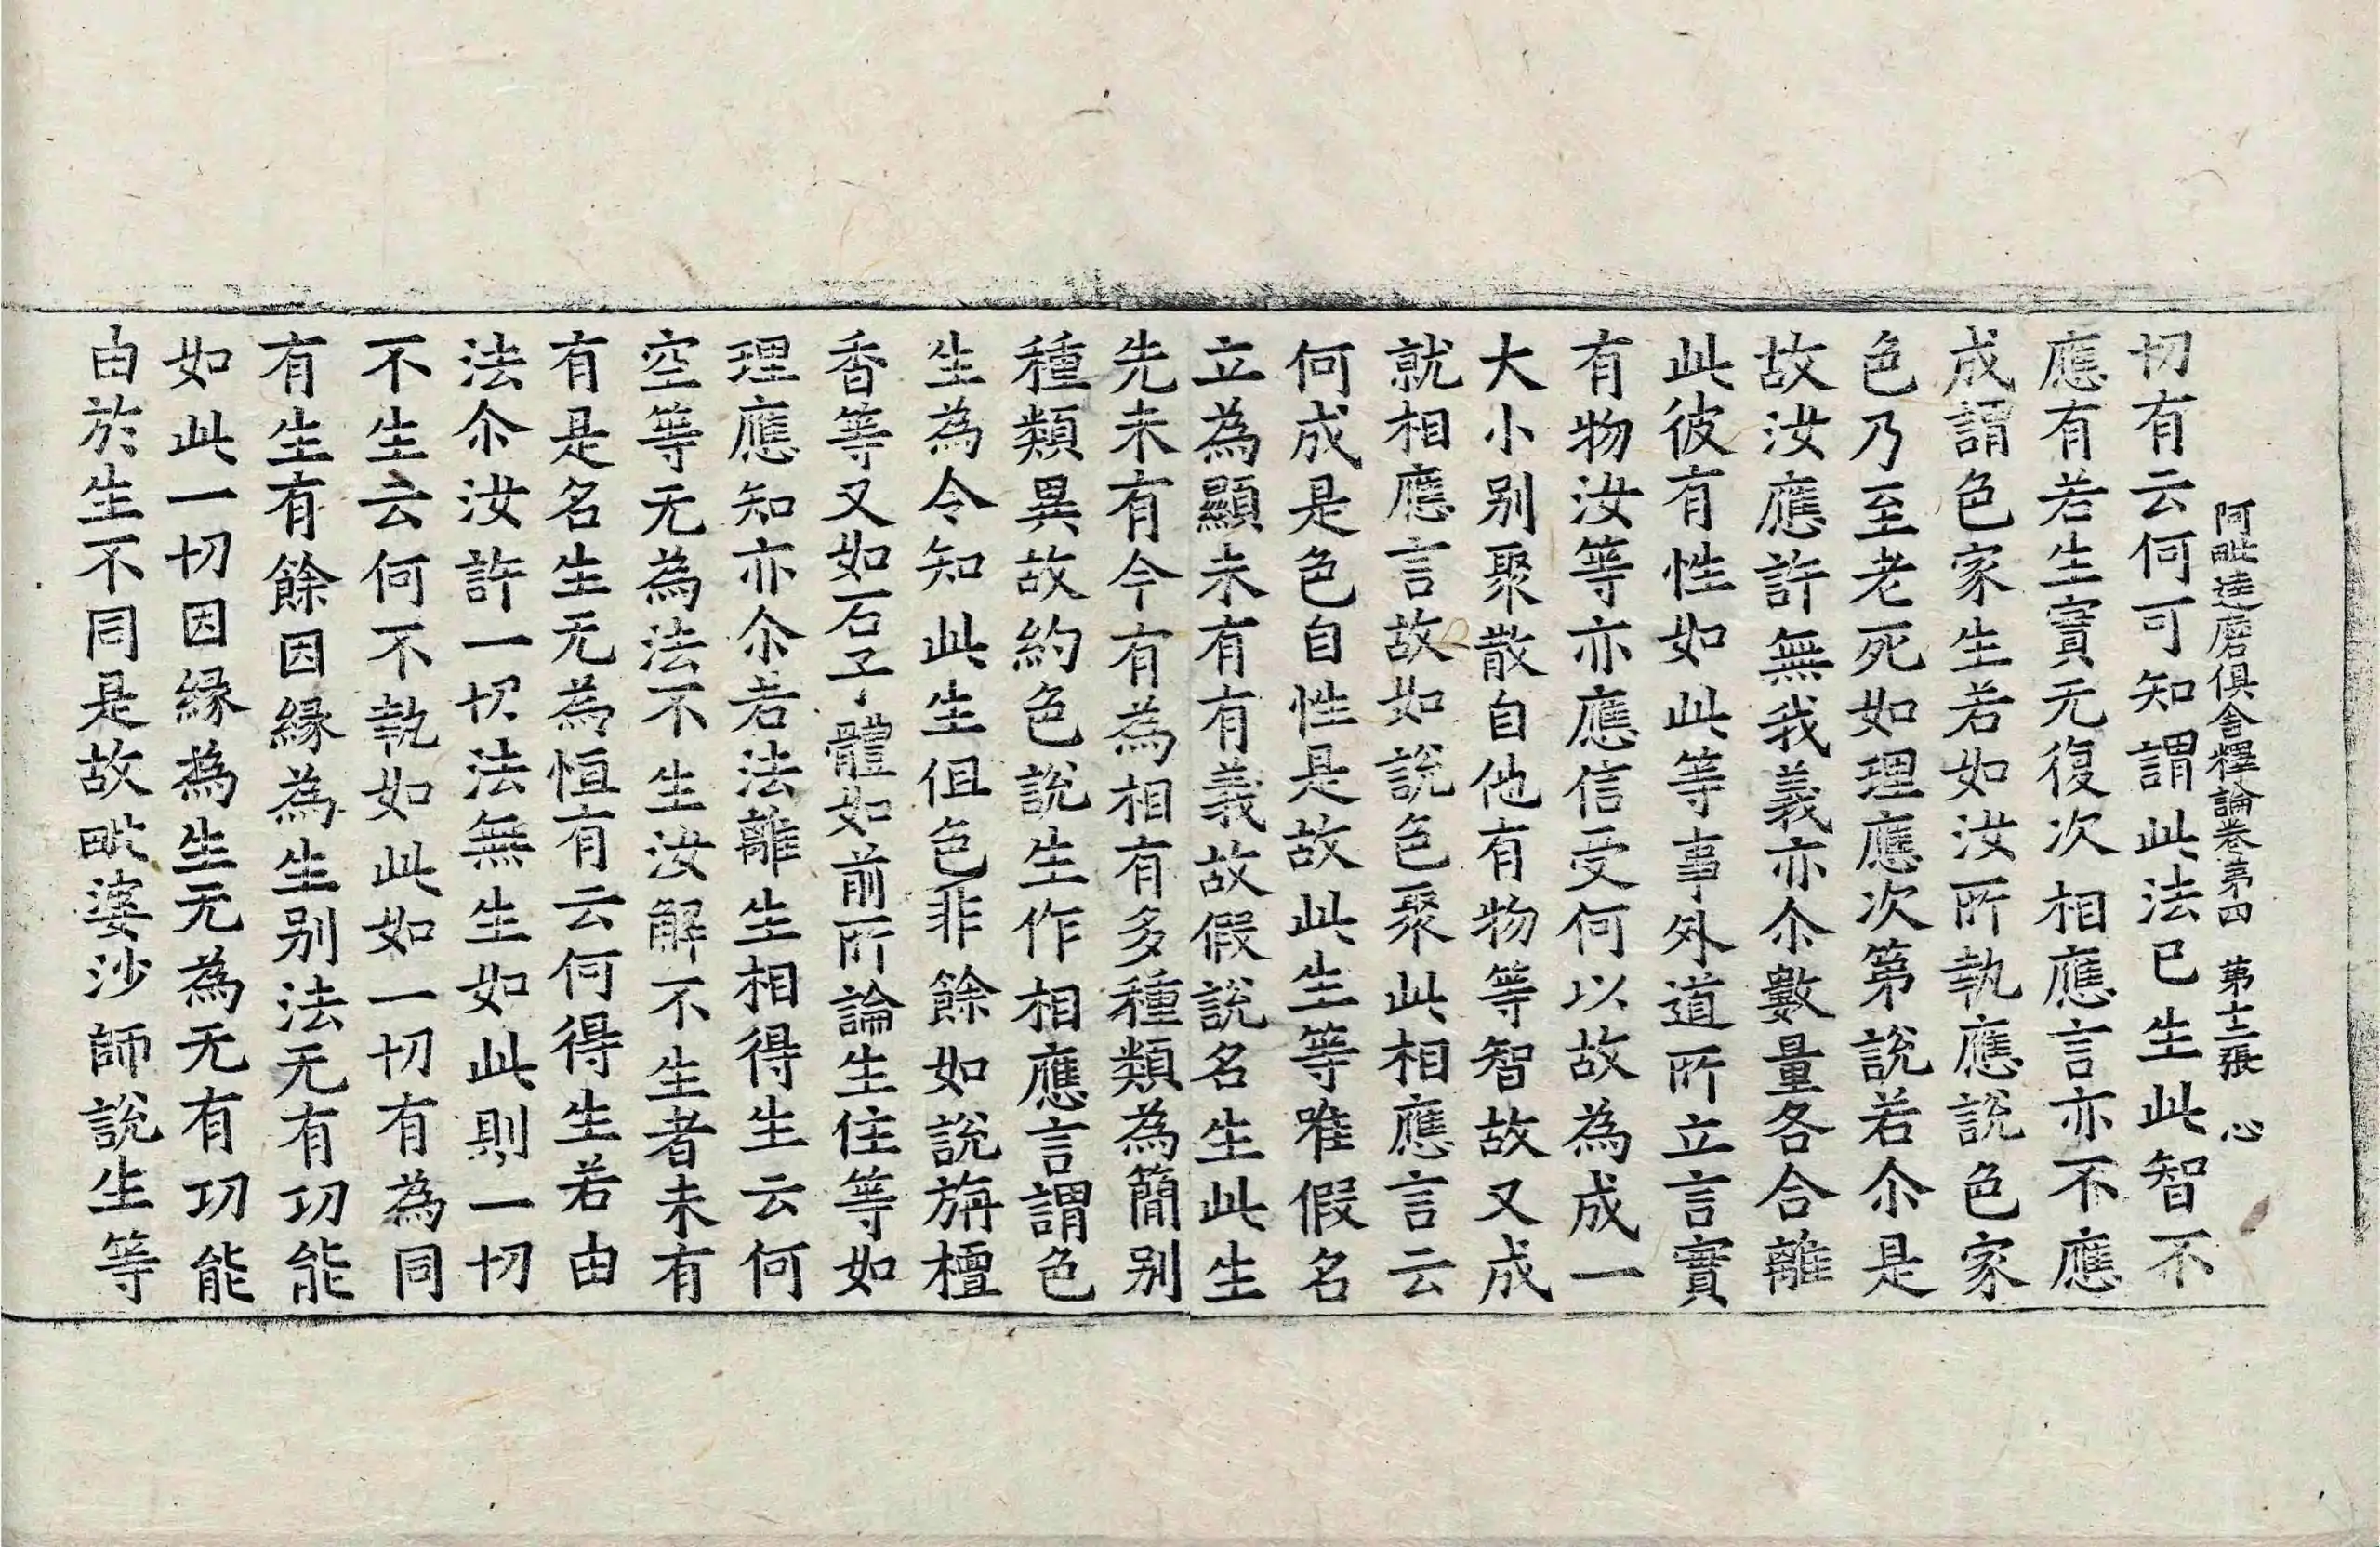 阿毗達磨俱舍釋論卷第四 第十二張 心
切有云何可知謂此法已生此智不
應有若生實无復次相應言亦不應
成謂色家生若如汝所執應說色家
色乃至老死如理應次第說若尒是
故汝應許無我義亦尒數量各合離
此彼有性如此等事外道所立言實
有物汝等亦應信受何以故為成一
大小別聚散自他有物等智故又成
就相應言故如說色聚此相應言云
何成是色自性是故此生等唯假名
立為顯未有有義故假說名生此生
先未有今有為相有多種類為簡別
種類異故約色說生作相應言謂色
生為令知此生但色非餘如說旃檀
香等又如石子體如前所論生住等如
理應知亦尒若法離生相得生云何
空等无為法不生汝解不生者未有
有是名生无為恒有云何得生若由
法尒汝許一切法無生如此則一切
不生云何不執如此如一切有為同
有生有餘因緣為生別法无有功能
如此一切因緣為生无為无有功能
由於生不同是故毗婆沙師說生等